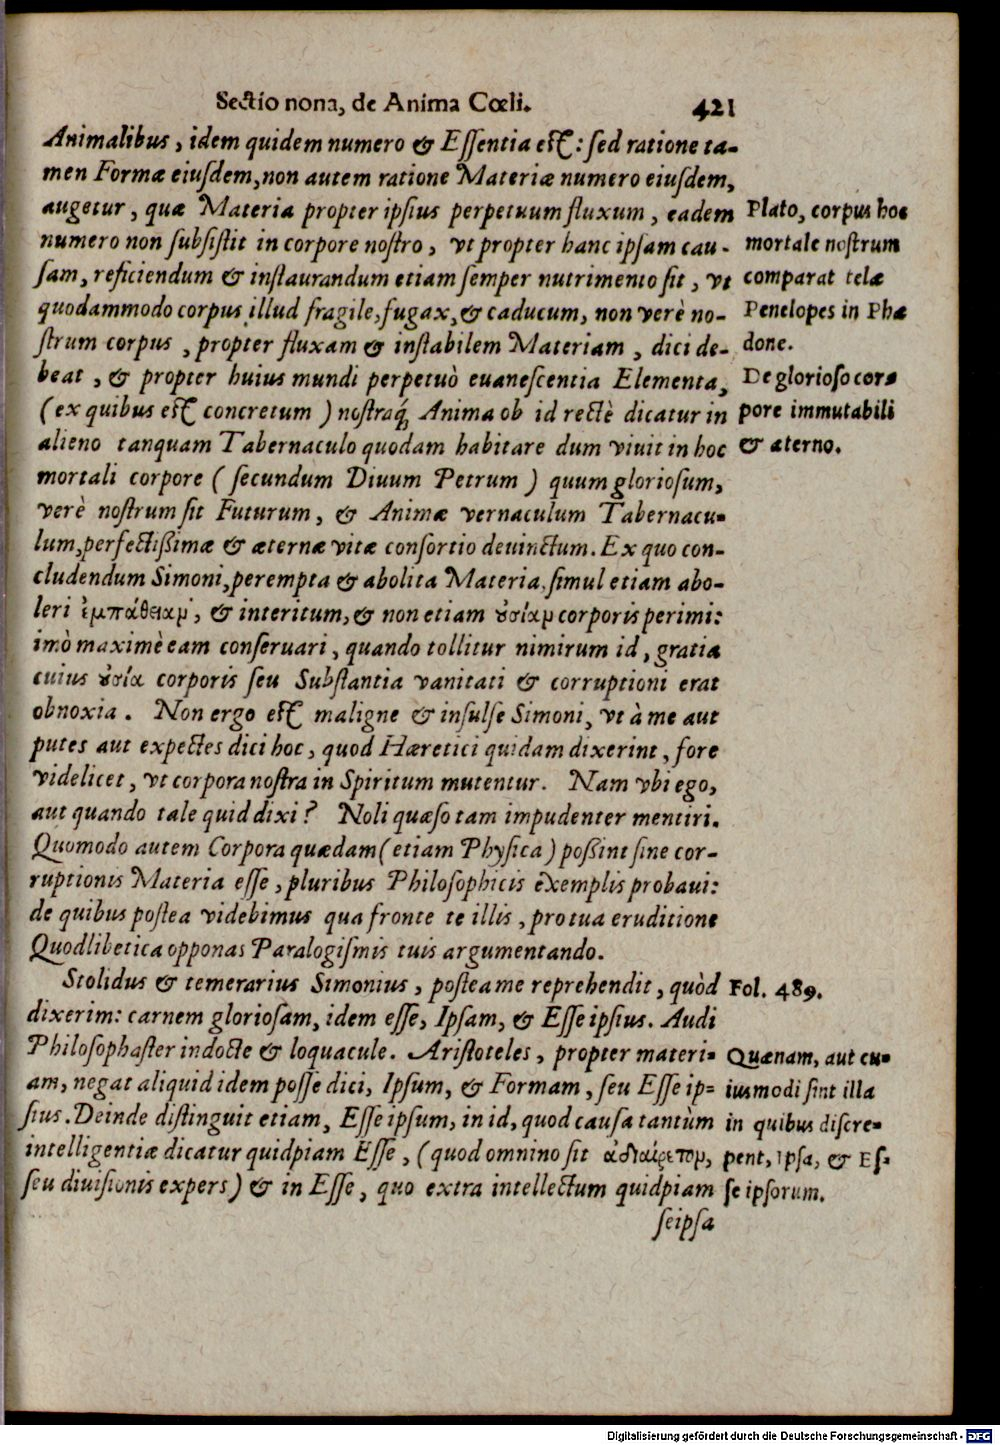 Sectio nona, de Anima Cœli. 421
Animalibus, idem quidem numero & Eſſentia eſt: ſed ratione ta-
men Formæ eiuſdem, non autem ratione Materiæ numero eiuſdem,
augetur, quæ Materia propter ipſius perpetuum fluxum, eadem
numero non ſubſiſtit in corpore noſtro, vt propter hanc ipſam cau-
ſam, reficiendum & inſtaurandum etiam ſemper nutrimento ſit, vt
quodammodo corpus illud fragile, fugax, & caducum, non verè no-
ſtrum corpus, propter fluxam & inſtabilem Materiam, dici de-
beat, & propter huius mundi perpetuò euaneſcentia Elementa,
(ex quibus eſt concretum) noſtraq́; Anima ob id rectè dicatur in
alieno tanquam Tabernaculo quodam habitare dum viuit in hoc
mortali corpore (ſecundum Diuum Petrum) quum glorioſum,
verè noſtrum ſit Futurum, & Animæ vernaculum Tabernacu-
lum, perfectißimæ & æternæ vitæ conſortio deuinctum. Ex quo con-
cludendum Simoni, perempta & abolita Materia, ſimul etiam abo-
leri ἐμπάθειαν, & interitum, & non etiam ȣσίαν corporis perimi:
imò maximè eam conſeruari, quando tollitur nimirum id, gratia
cuius ȣσία corporis ſeu Subſtantia vanitati & corruptioni erat
obnoxia. Non ergo eſt maligne & inſulſe Simoni, vt à me aut
putes aut expectes dici hoc, quod Hæretici quidam dixerint, fore
videlicet, vt corpora noſtra in Spiritum mutentur. Nam vbi ego,
aut quando tale quid dixi? Noli quæſo tam impudenter mentiri.
Quomodo autem Corpora quædam (etiam Phyſica) poßint ſine cor-
ruptionis Materia eſſe, pluribus Philoſophicis exemplis probaui:
de quibus poſtea videbimus qua fronte te illis, pro tua eruditione
Quodlibetica opponas Paralogiſmis tuis argumentando.
Stolidus & temerarius Simonius, poſtea me reprehendit, quòd
dixerim: carnem glorioſam, idem eſſe, Ipſam, & Eſſe ipſius. Audi
Philoſophaſter indocte & loquacule. Ariſtoteles, propter materi-
am, negat aliquid idem poſſe dici, Ipſum, & Formam, ſeu Eſſe ip-
ſius. Deinde diſtinguit etiam, Eſſe ipſum, in id, quod cauſa tantùm
intelligentiæ dicatur quidpiam Eſſe, (quod omnino ſit ἀδιαίρετον,
ſeu diuiſionis expers) & in Eſſe, quo extra intellectum quidpiam
ſeipſa
Plato, corpus hoc
mortale noſtrum
comparat telæ
Penelopes in Phæ
done.
De glorioſo cor-
pore immutabili
& æterno.
Fol. 489.
Quænam, aut cu-
iusmodi ſint illa
in quibus diſcre-
pent, Ipſa, & Eſ-
ſe ipſorum.
Digitalisierung gefördert durch die Deutsche Forschungsgemeinschaft - DFG